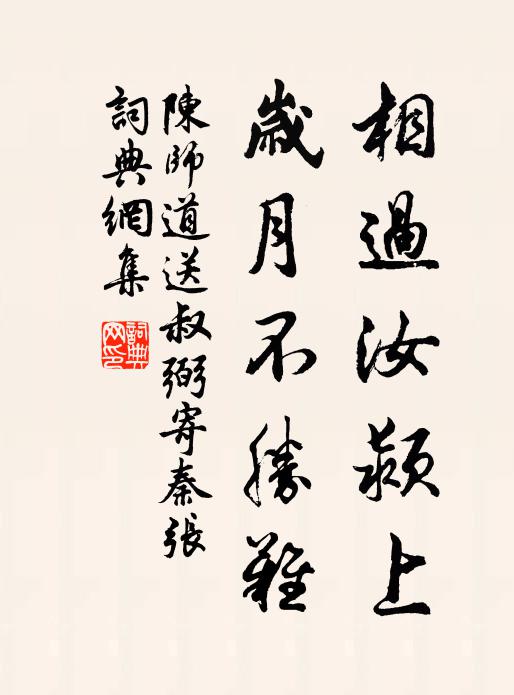 相過汝潁上
歲月不勝難
陳師道送叔弼寄秦張
詞典網集
詞典網印